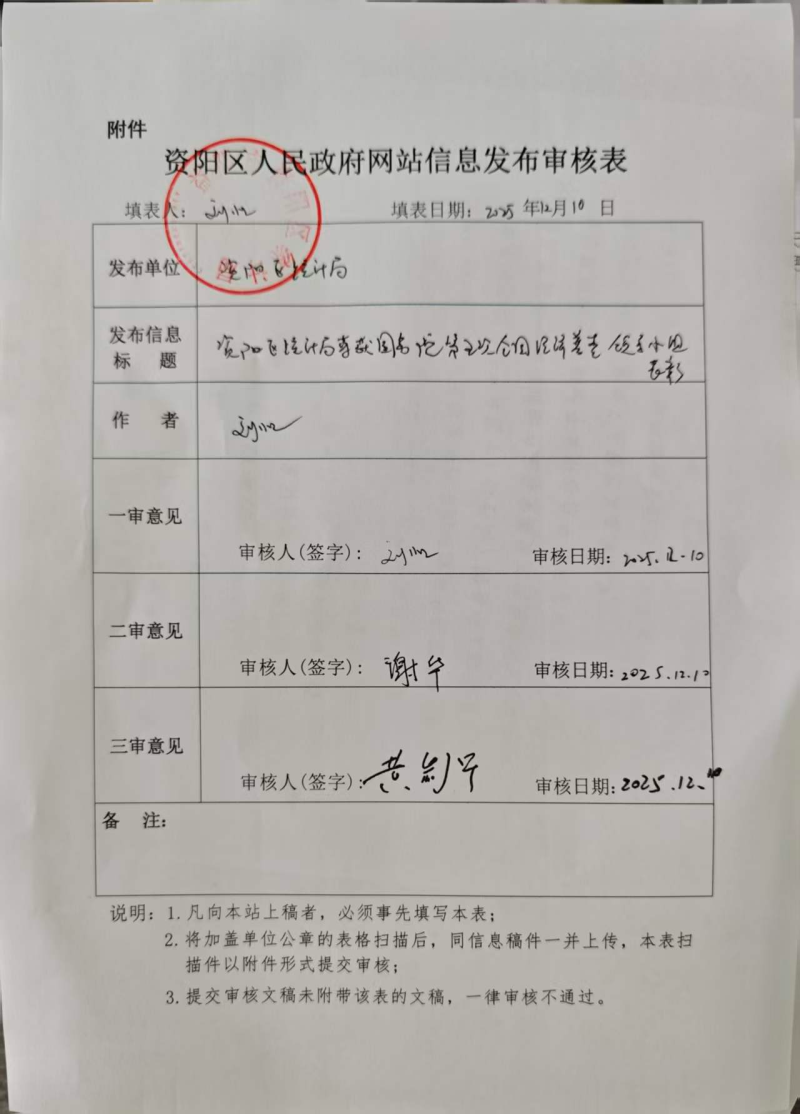 附件
资阳区人民政府网站信息发布审核表
填表人： 填表日期：2025 年12月10 日
发布单位 资阳区统计局
发布信息标 题 资阳区统计局喜获国务院第五次全国经济普查领导小组
表彰
作 者
一审意见
审核人(签字)： 审核日期：2025.12.10
二审意见
审核人(签字)：谢华 审核日期：2025.12.10
三审意见
审核人(签字)：黄剑 审核日期：2025.12.10
备 注：
说明：1.凡向本站上稿者，必须事先填写本表；
2.将加盖单位公章的表格扫描后，同信息稿件一并上传，本表扫
描件以附件形式提交审核；
3.提交审核文稿未附带该表的文稿，一律审核不通过。